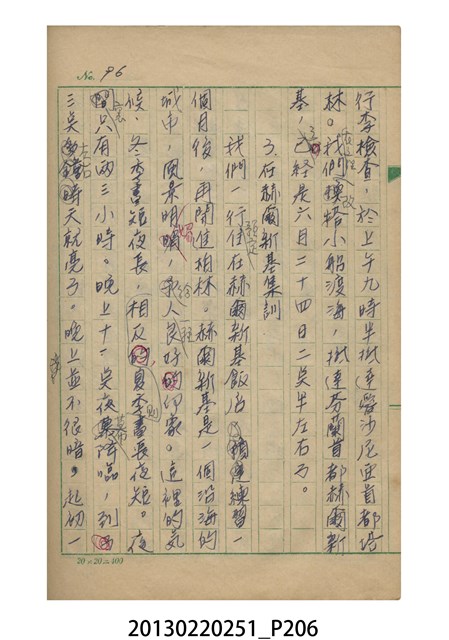 No. 96
行李檢查,於上午九時半抵達愛沙尼亞首都塔
林。我們轉搭小船渡海,抵達芬蘭首都赫爾新
基,已經是六月二十四日二点半左右了。
3. 在赫爾新基集訓
我們一行住在赫爾新基飯店,練習一
個月後,再開往柏林。赫爾新基是一個沿海的
城市,風景明媚,給人良好的印象。這裡的気
候,冬季晝短夜長,相反的夏季晝長夜短。夜
間只有兩三小時。晚上十一点夜幕降臨,到
三点左右天就亮了,晚上並不很暗。起初一
20×20=400
20130220251_P206